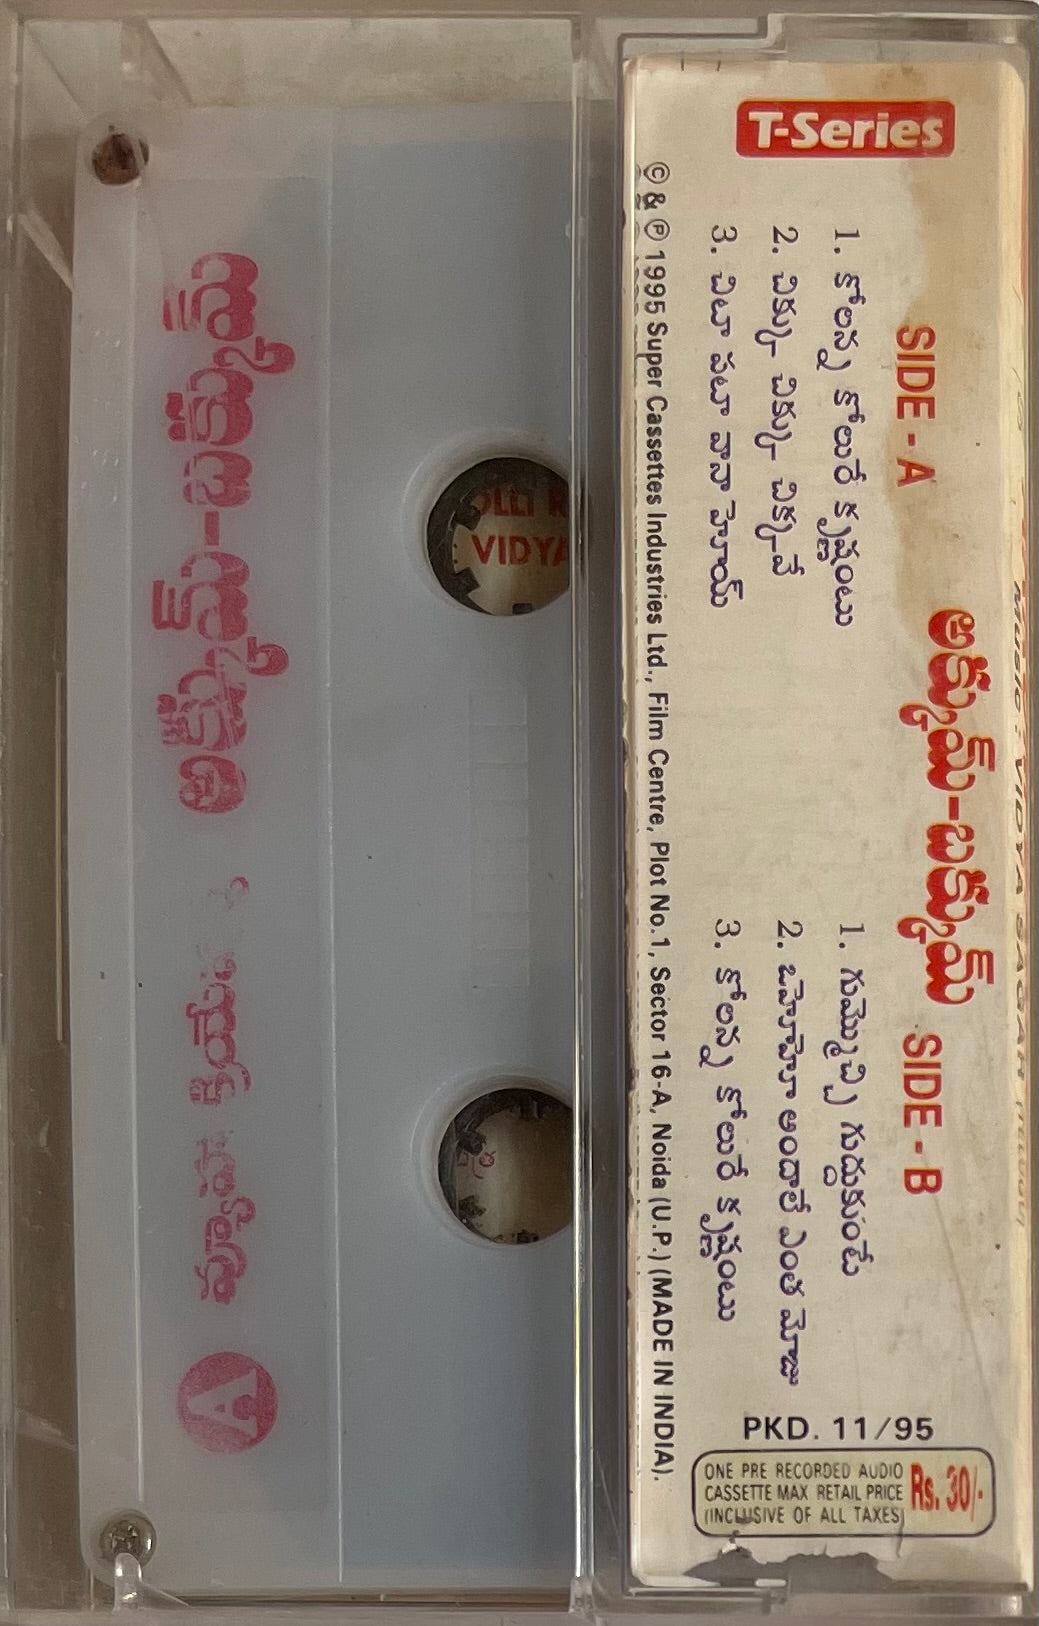 T-Series
అక్కుమ్-బక్కుమ్
SIDE - A
1. కోలన్న కోయిరే కృష్ణంటు
2. చిక్కు చిక్కు చిక్కువే
3. చిటా పటా వానా హొయ్
SIDE - B
1. గుమ్మెచ్చి గుద్దుకుంటే
2. ఒహొహొ అందాలే ఎంత మోజు
3. కోలన్న కోయిరే కృష్ణంటు
© & ℗ 1995 Super Cassettes Industries Ltd., Film Centre, Plot No.1, Sector 16-A, Noida (U.P.) (MADE IN INDIA).
PKD. 11/95
ONE PRE RECORDED AUDIO
CASSETTE MAX RETAIL PRICE
(INCLUSIVE OF ALL TAXES)
Rs. 30/-
MUSIC : VIDYA SAGAR
అక్కుమ్-బక్కుమ్
A
OLLI R
VIDYA